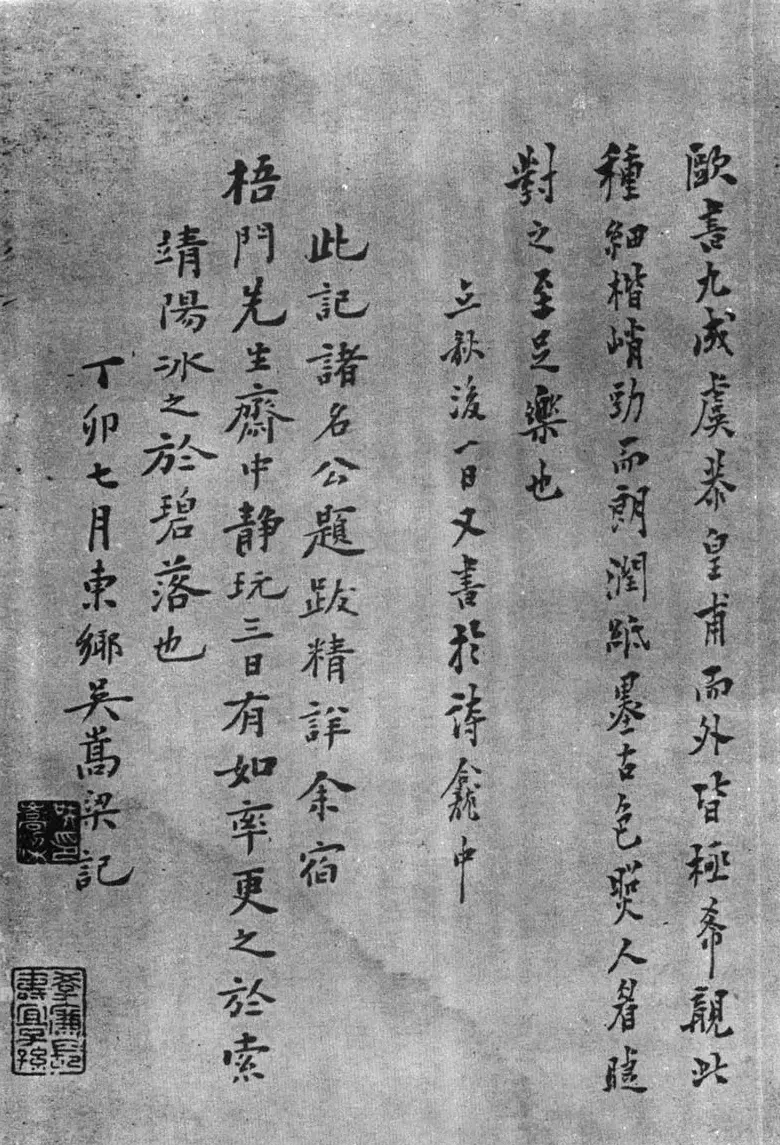 歐書九成虞恭皇甫而外皆極希覯此
種細楷峭勁而朗潤紙墨古色照人眉睫
對之至足樂也
立秋後一日又書於詩龕中
此記諸名公題跋精詳余宿
梧門先生齋中靜玩三日有如率更之於索
靖陽冰之於碧落也
丁卯七月東鄉吳嵩梁記